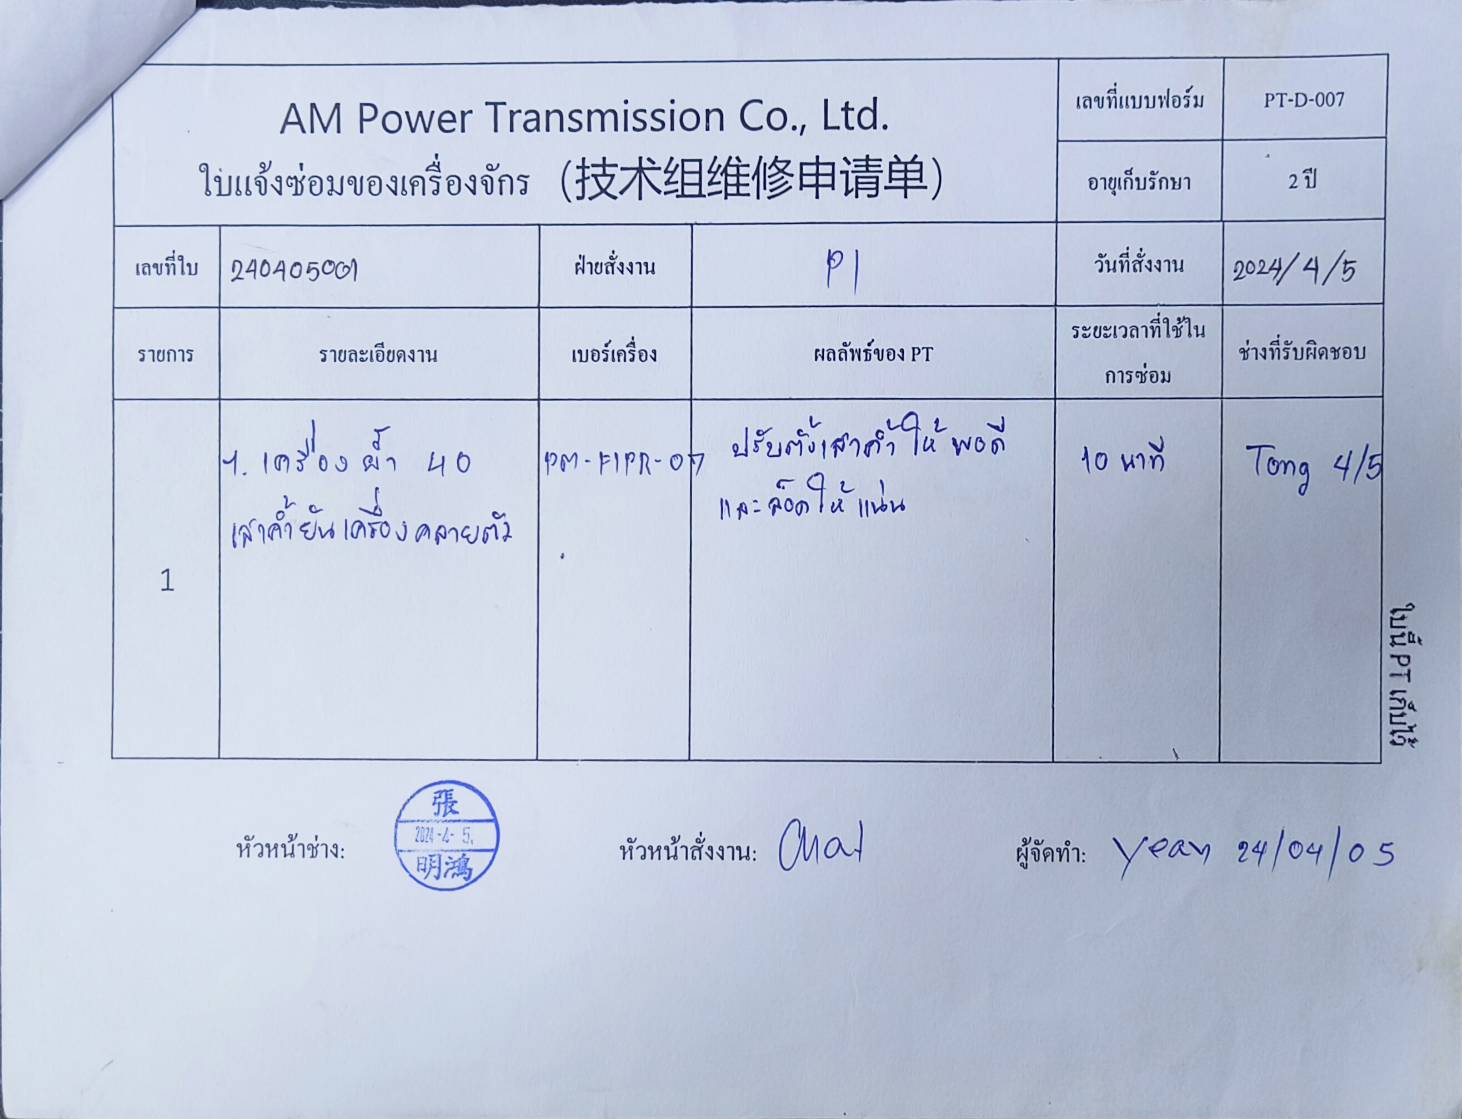 AM Power Transmission Co., Ltd.
ใบแจ้งซ่อมของเครื่องจักร (技术组维修申请单)
เลขที่แบบฟอร์ม PT-D-007
อายุเก็บรักษา 2 ปี
เลขที่ใบ 240405001 ฝ่ายสั่งงาน P1 วันที่สั่งงาน 2024/4/5
รายการ รายละเอียดงาน เบอร์เครื่อง ผลลัพธ์ของ PT ระยะเวลาที่ใช้ใน ช่างที่รับผิดชอบ
การซ่อม
1
1. เครื่อง ผ้า 40
เสาค้ำยันเครื่องคลายตัว
PM-FIPR-07
ปรับตั้งเสาค้ำ ให้ พอดี
และล็อคให้ แน่น
10 นาที
Tong 4/5
ใบนี้ PT เก็บไว้
หัวหน้าช่าง: 張
2024-4-5.
明鴻
หัวหน้าสั่งงาน: Chat
ผู้จัดทำ: Yean 24/04/05